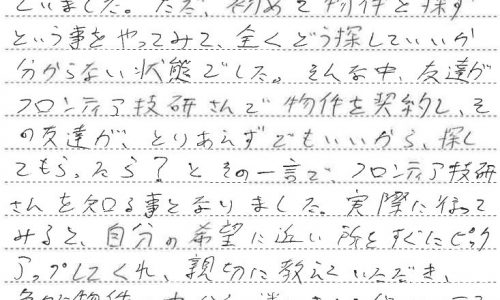 いました。ただ、初めて物件を探す
という事をやってみて、全くどう探していいか
分からない状態でした。そんな中、友達が
フロンティア技研さんで物件を契約し、そ
の友達が、とりあえずでもいいから、探し
てもらったら?とその一言で、フロンティア技研
さんを知る事となりました。実際に行って
みると、自分の希望に近い所をすぐにピック
アップしてくれ、親切に教えていただき、